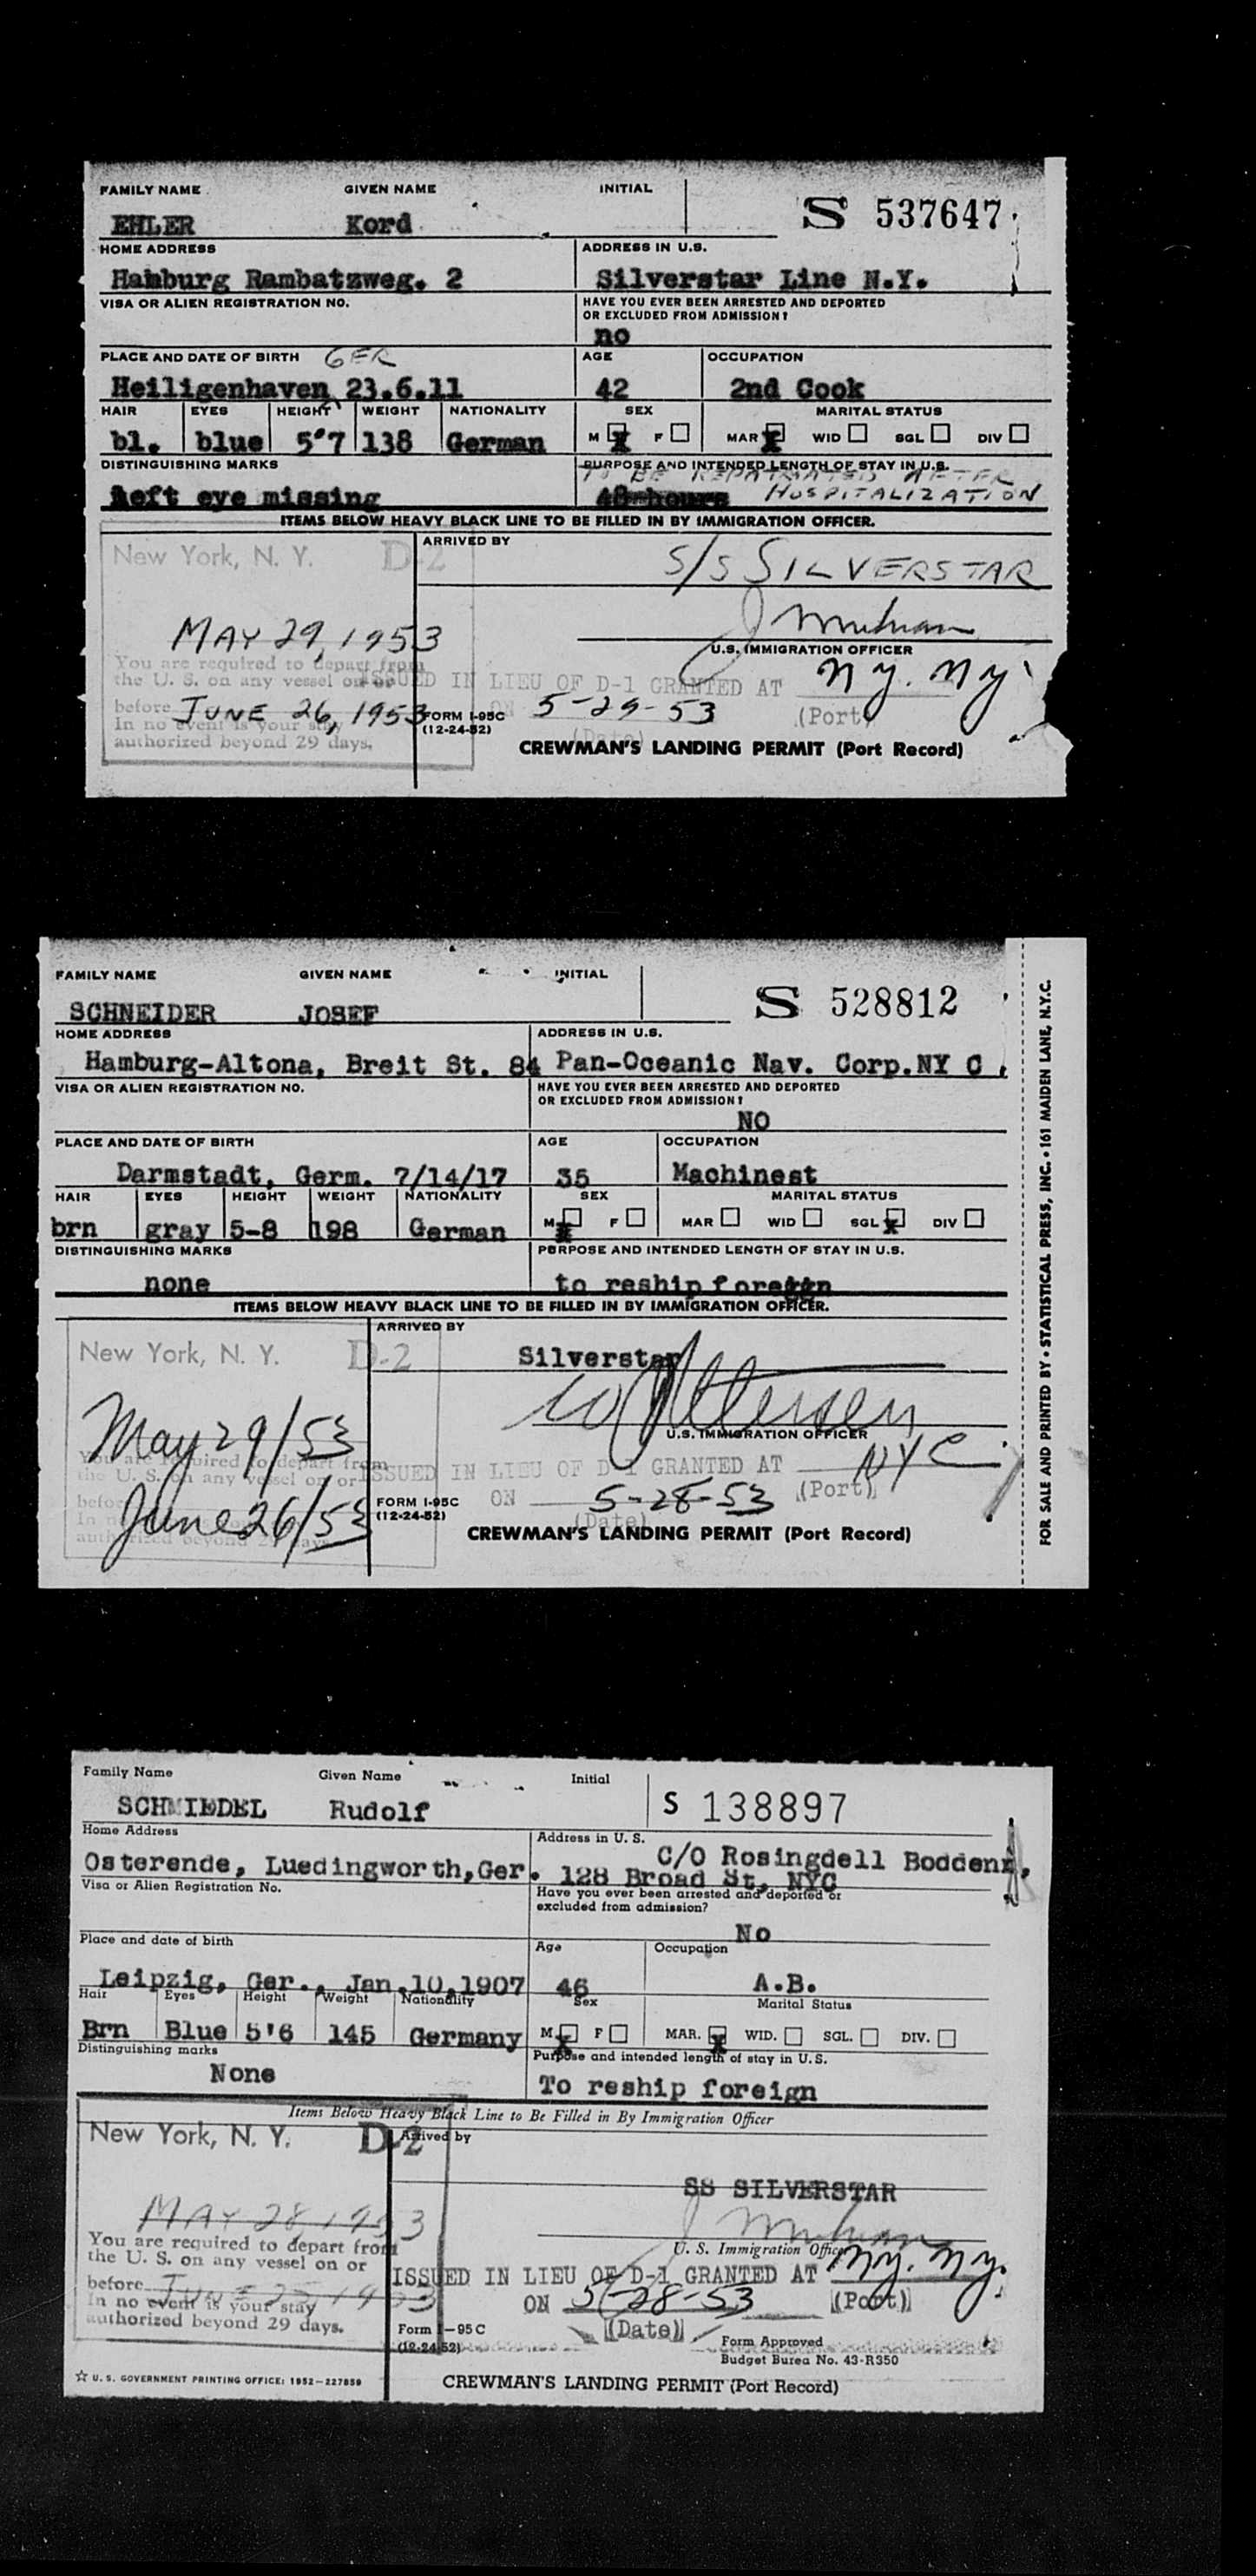 FAMILY NAME GIVEN NAME INITIAL
EHLER Kord S 537647
HOME ADDRESS ADDRESS IN U.S.
Hamburg Rambatzweg. 2 Silverstar Line N.Y.
VISA OR ALIEN REGISTRATION NO. HAVE YOU EVER BEEN ARRESTED AND DEPORTED
OR EXCLUDED FROM ADMISSION?
no
PLACE AND DATE OF BIRTH GER AGE OCCUPATION
Heiligenhaven 23.6.11 42 2nd Cook
HAIR EYES HEIGHT WEIGHT NATIONALITY SEX MARITAL STATUS
bl. blue 5'7 138 German M X F MAR X WID SGL DIV
DISTINGUISHING MARKS PURPOSE AND INTENDED LENGTH OF STAY IN U.S.
TO BE REPATRIATED AFTER
left eye missing 48 hours HOSPITALIZATION
ITEMS BELOW HEAVY BLACK LINE TO BE FILLED IN BY IMMIGRATION OFFICER.
New York, N. Y. D-2 ARRIVED BY
S/S SILVERSTAR
MAY 29, 1953
U.S. IMMIGRATION OFFICER
You are required to depart from
the U. S. on any vessel on or ISSUED IN LIEU OF D-1 GRANTED AT N.Y. N.Y.
before JUNE 26, 1953 FORM I-95C ON 5-29-53 (Port)
In no event is your stay (12-24-52) (Date)
authorized beyond 29 days. CREWMAN'S LANDING PERMIT (Port Record)
FAMILY NAME GIVEN NAME INITIAL
SCHNEIDER JOSEF S 528812
HOME ADDRESS ADDRESS IN U.S.
Hamburg-Altona, Breit St. 84 Pan-Oceanic Nav. Corp.NY C.
VISA OR ALIEN REGISTRATION NO. HAVE YOU EVER BEEN ARRESTED AND DEPORTED
OR EXCLUDED FROM ADMISSION?
NO
PLACE AND DATE OF BIRTH AGE OCCUPATION
Darmstadt, Germ. 7/14/17 35 Machinest
HAIR EYES HEIGHT WEIGHT NATIONALITY SEX MARITAL STATUS
brn gray 5-8 198 German M X F MAR WID SGL X DIV
DISTINGUISHING MARKS PURPOSE AND INTENDED LENGTH OF STAY IN U.S.
none to reship foreign
ITEMS BELOW HEAVY BLACK LINE TO BE FILLED IN BY IMMIGRATION OFFICER.
New York, N. Y. D-2 ARRIVED BY
Silverstar
May 29/53
U.S. IMMIGRATION OFFICER
You are required to depart from
the U. S. on any vessel on or ISSUED IN LIEU OF D-1 GRANTED AT NYC
before June 26/53 FORM I-95C ON 5-28-53 (Port)
In no (12-24-52) (Date)
authorized beyond 29 days CREWMAN'S LANDING PERMIT (Port Record)
FOR SALE AND PRINTED BY • STATISTICAL PRESS, INC. • 161 MAIDEN LANE, N.Y.C.
Family Name Given Name Initial
SCHMIEDEL Rudolf S 138897
Home Address Address in U. S.
C/O Rosingdell Boddenn,
Osterende, Luedingworth,Ger. 128 Broad St, NYC
Visa or Alien Registration No. Have you ever been arrested and deported or
excluded from admission?
No
Place and date of birth Age Occupation
Leipzig, Ger., Jan.10,1907 46 A.B.
Hair Eyes Height Weight Nationality Sex Marital Status
Brn Blue 5'6 145 Germany M X F MAR. X WID. SGL. DIV.
Distinguishing marks Purpose and intended length of stay in U.S.
None To reship foreign
Items Below Heavy Black Line to Be Filled in By Immigration Officer
New York, N. Y. D-2 Arrived by
SS SILVERSTAR
MAY 28, 1953
You are required to depart from U. S. Immigration Officer
the U. S. on any vessel on or ISSUED IN LIEU OF D-1 GRANTED AT N.Y. N.Y.
before JUNE 25 1953 ON 5-28-53 (Port)
In no event is your stay
authorized beyond 29 days. Form I-95C (Date)
(12-24-52) Form Approved
Budget Burea No. 43-R350
☆ U. S. GOVERNMENT PRINTING OFFICE: 1952—227859 CREWMAN'S LANDING PERMIT (Port Record)